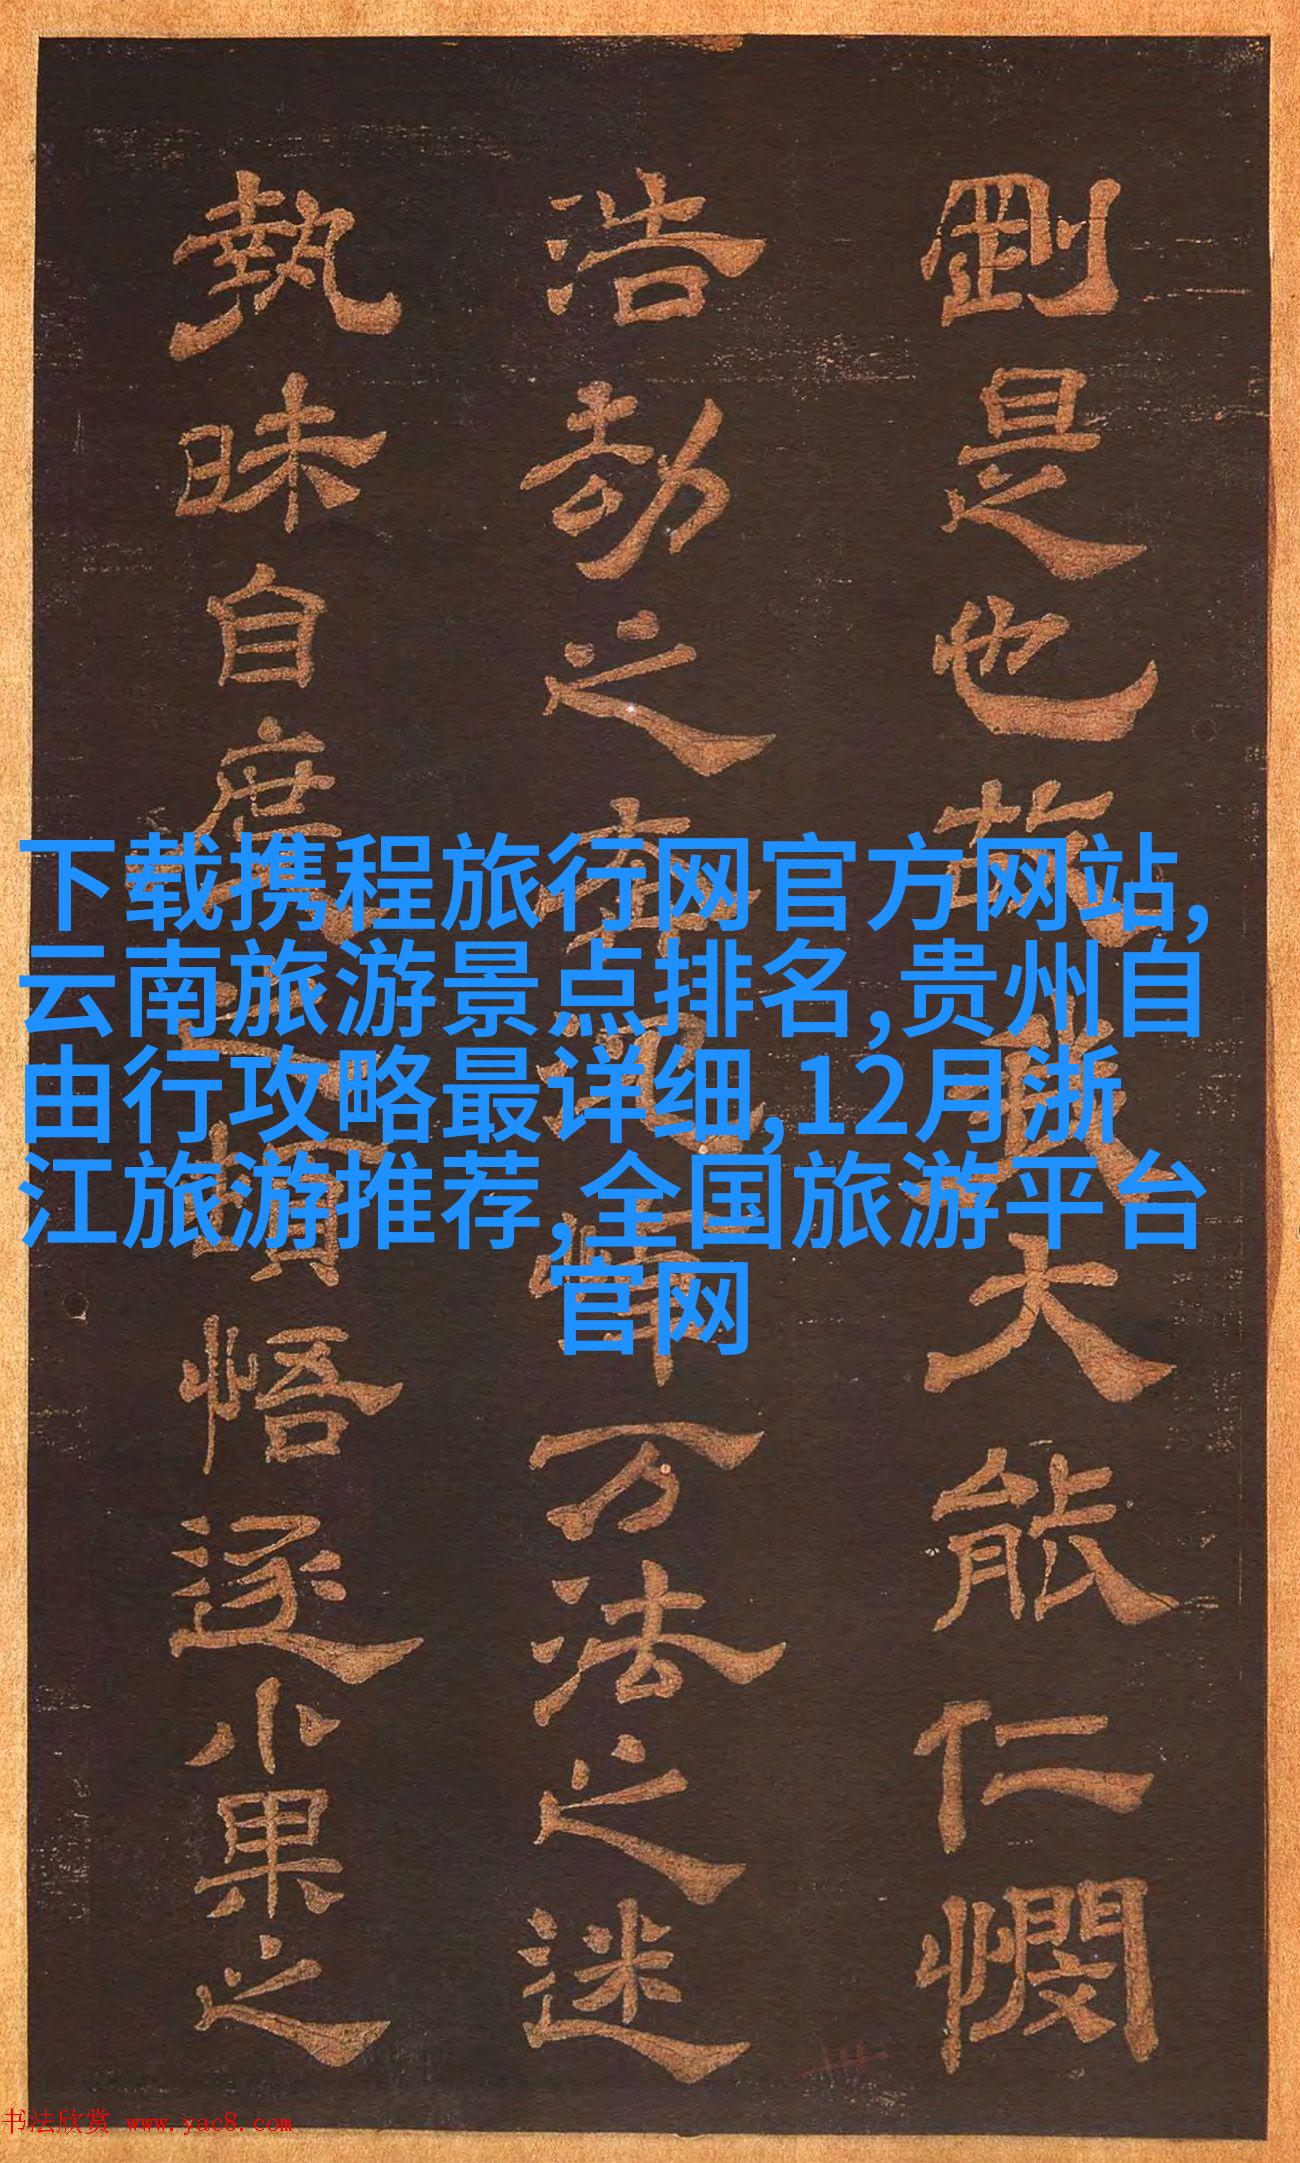 剛是也故我大能仁憫
浩劫之
万法之迷
執昧自度
悟逐小果之
下载携程旅行网官方网站,
云南旅游景点排名,贵州自
由行攻略最详细,12月浙
江旅游推荐,全国旅游平台
官网
书法欣赏 www.yac8.com